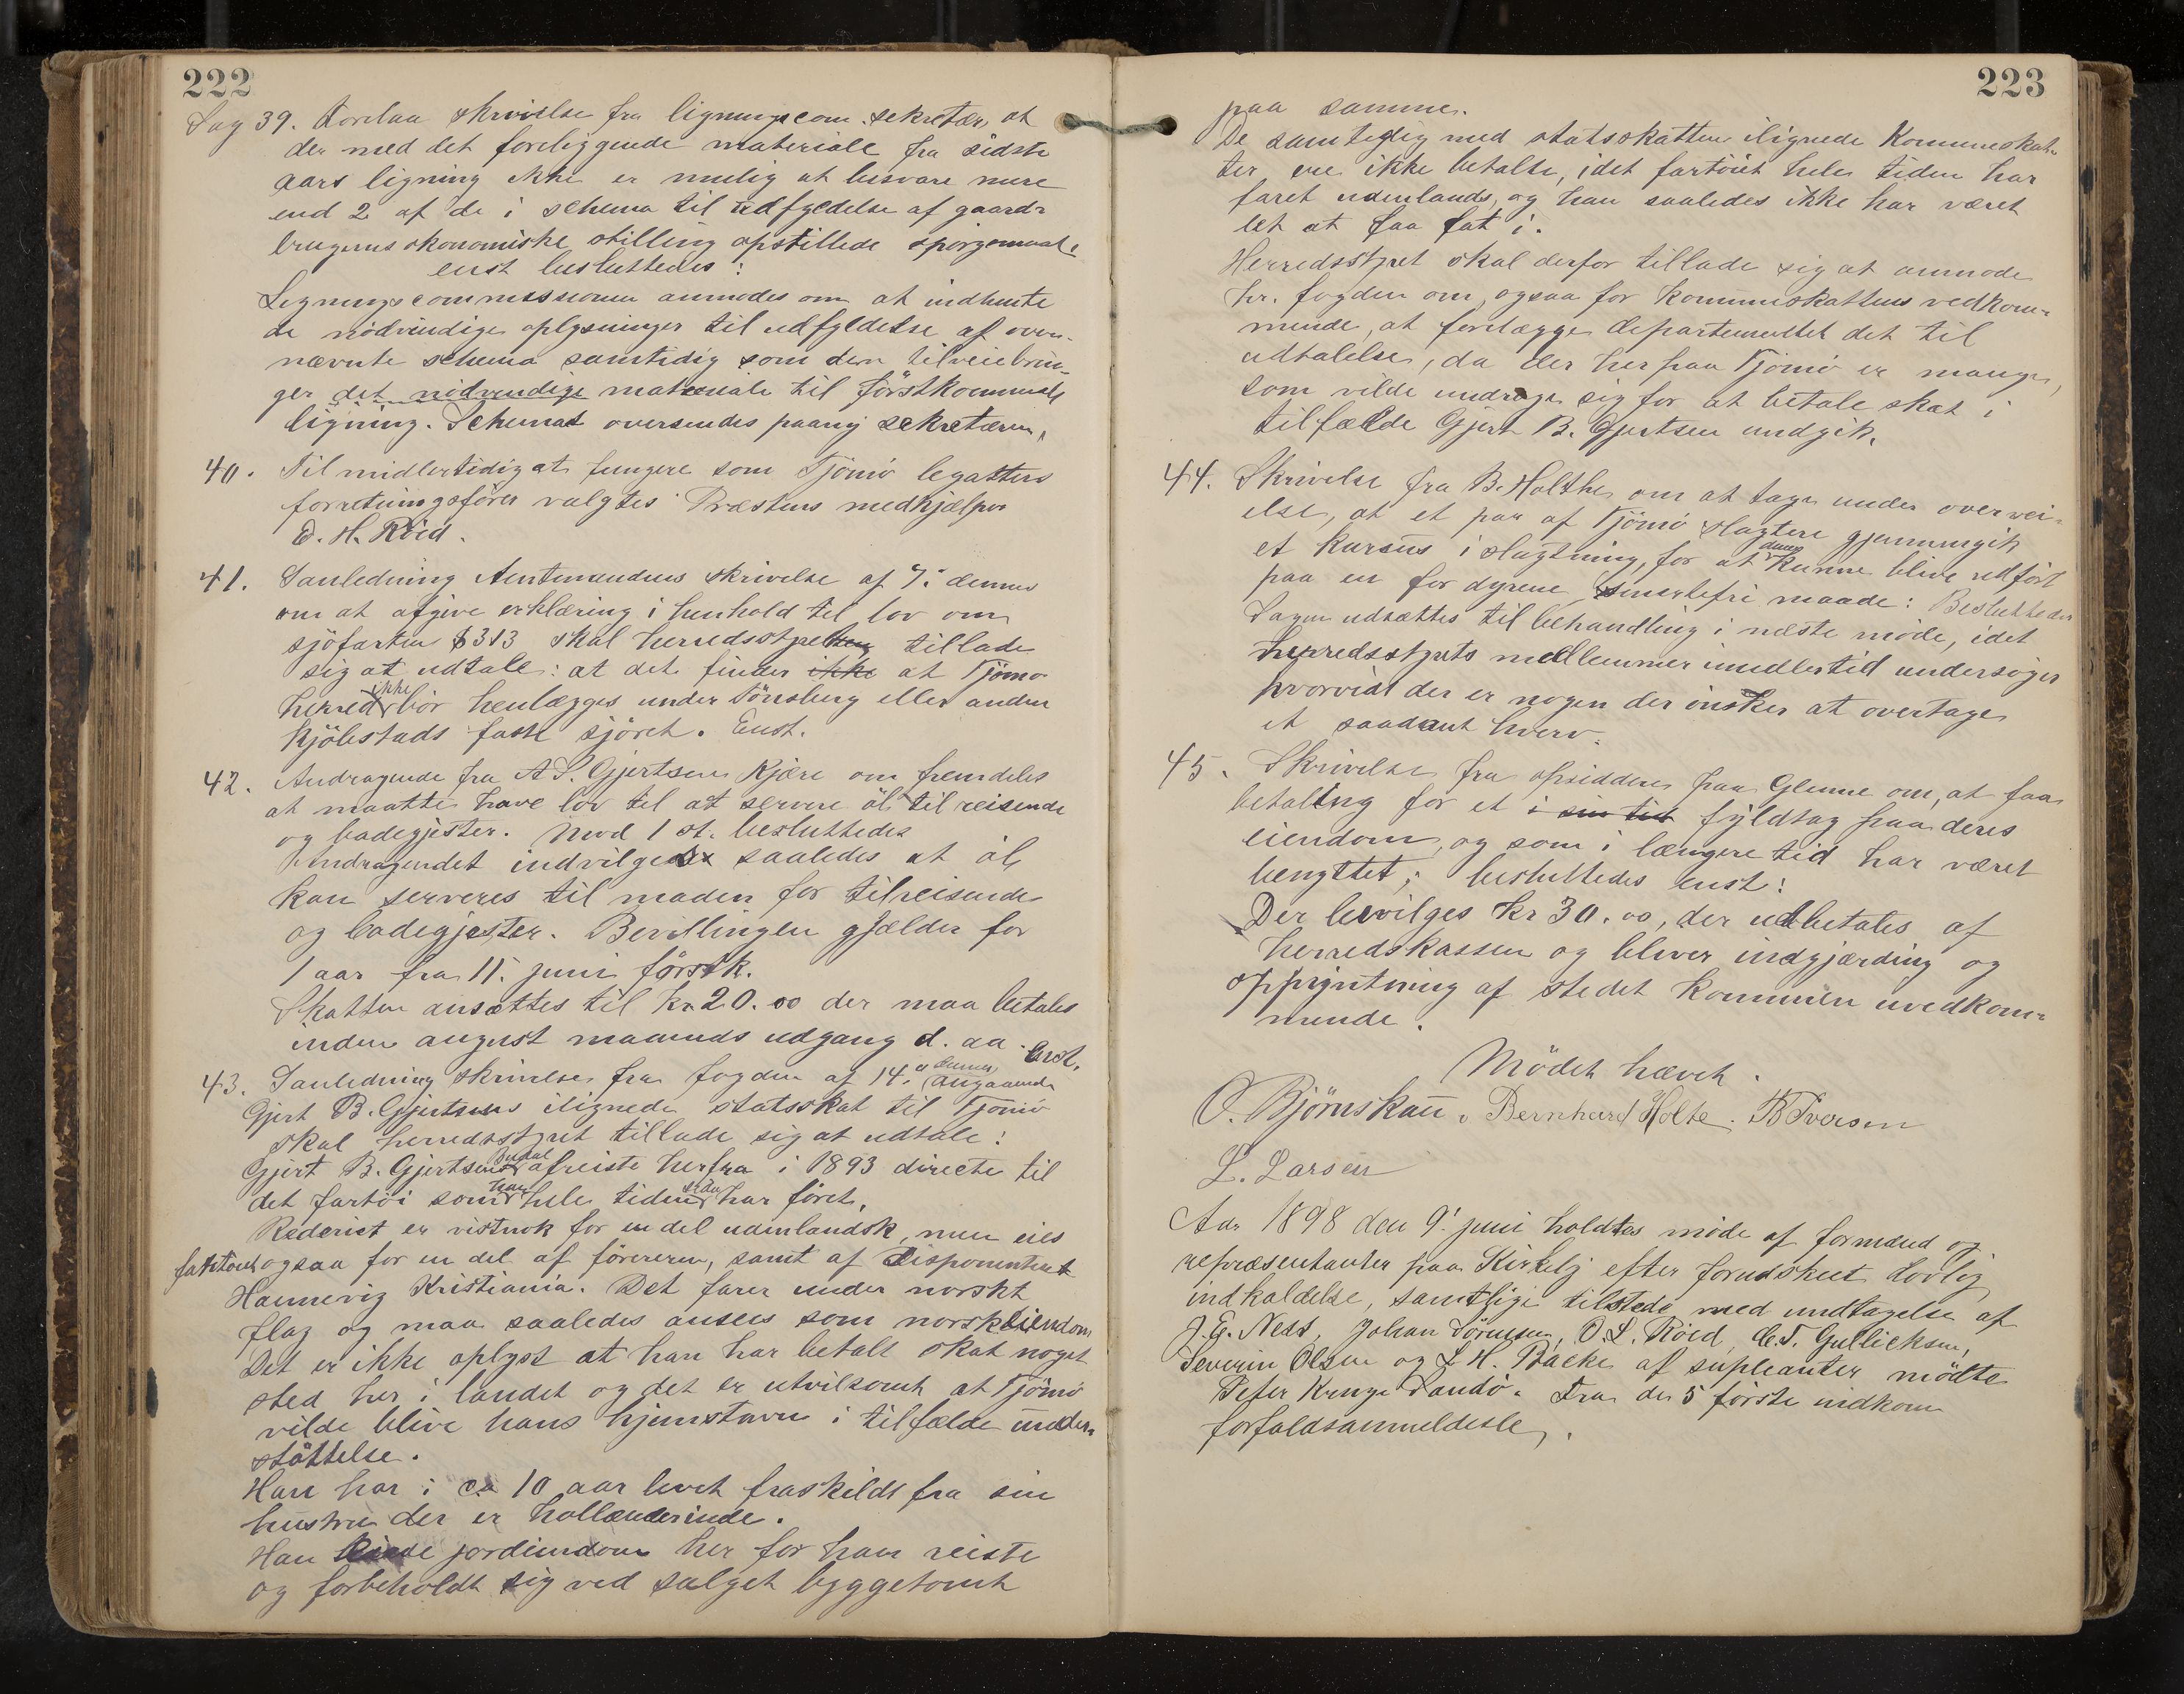 222
Sag 39. Forelaa skrivelse fra ligningscom. sekretær, at
der med det foreliggende materiale fra sidste
aars ligning ikke er mulig at besvare mere
end 2 af de i schema til udfyldelse af gaard-
brugernes økonomiske stilling opstillede spörgsmaal
enst besluttedes:
Ligningscommissionen anmodes om at indhente
de nödvendige oplysninger til udfyldelse af oven-
nævnte schema samtidig som den tilveiebrin-
ger det nödvendige materiale til förstkommende
ligning. Schemat oversendes paany sekretæren,
40. Til midlertidig at fungere som Tjömö legatters
forretningsförer valgtes Præstens medhjælper
E. H. Röed.
41. I anledning Amtmandens skrivelse af 7. dennes
om at afgive erklæring i henhold til lov om
sjöfarten § 313 skal herredsstyret tillade
sig at udtale: at det finder ikke at Tjömö
herred ikke bör henlægges under Tönsberg eller anden
kjöbstads faste sjöret. Enst.
42. Andragende fra A. S. Gjertsen Kjære om fremdeles
at maatte have lov til at servere öl til reisende
og badegjester. Mod 1 st. besluttedes
Andragendet indvilges saaledes at öl
kan serveres til maden for tilreisende
og badegjester. Bevillingen gjælder for
1 aar fra 11. juni förstk.
Skatten ansættes til kr. 20.00 der maa betales
inden august maaneds udgang d. aa. Enst.
43. I anledning skrivelse fra fogden af 14. dennes angaaende
Gjert B. Gjertsens ilignede statsskat til Tjömö
skal herredsstyret tillade sig at udtale:
Gjert B. Gjertsens Budal afreiste herfra i 1893 directe til
det fartöi som han hele tiden siden har föret.
Rederiet er vistnok for en del udenlandsk, men eies
fartöiet ogsaa for en del af föreren, samt af Disponenten
Hannevig Kristiania. Det farer under norskt
flag og maa saaledes ansees som norsk eiendom
Det er ikke oplyst at han har betalt skat noget
sted her i landet og det er utvilsomt at Tjömö
vilde blive hans hjemstavn i tilfælde under-
støttelse.
Han har i ca 10 aar levet fraskildt fra sin
hustru der er hollænderinde.
Han eiede jordeiendom her för han reiste
og forbeholdt sig ved salget byggetomt
223
paa samme.
De samtidig med statsskatten ilignede kommuneskat-
ter ere ikke betalte, idet fartöiet hele tiden har
faret udenlands, og han saaledes ikke har været
let at faa fat i.
Herredsstyret skal derfor tillade sig at anmode
hr. fogden om, ogsaa for kommuneskattens vedkom-
mende, at forelægge departementet det til
udtalelse, da der her paa Tjömö er mange,
som vilde undrage sig for at betale skat i
tilfælde Gjert B. Gjertsen undgik.
44. Skrivelse fra B. Holthe om at tage under overvei-
else, at et par af Tjömö slagtere gjennemgik
et kursus i slagtning, for at denne kunne blive udfört
paa en for dyrene smertefri maade: Besluttedes
Sagen udsættes til behandling i næste möde, idet
herredsstyrets medlemmer imidlertid undersöger
hvorvidt der er nogen der önsker at overtage
et saadant hverv.
45. Skrivelse fra opsidderne paa Glenne om, at faa
betaling for et i sin tid fyldtag paa deres
eiendom, og som i længere tid har været
benyttet; besluttedes enst:
Der bevilges kr 30.00, der udbetales af
herredskassen og bliver indgjærding og
oppyntning af stedet kommunen uvedkom-
mende.
Mödet hævet.
O. Björnskau. Bernhard Holte. B Iversen
L. Larsen
Aar 1898 den 9. juni holdtes möde af formænd og
repræsentanter paa Kirkelg efter forudskeet lovlig
indkaldelse, samtlige tilstede med undtagelse af
J. G. Ness, Johan Sörensen, O. L. Röed, C. T. Gullicksen,
Severin Olsen og L H. Bache af supleanter mödte
Peter Kruge Sandö. Fra de 5 förste indkom
forfaldsanmeldelse.